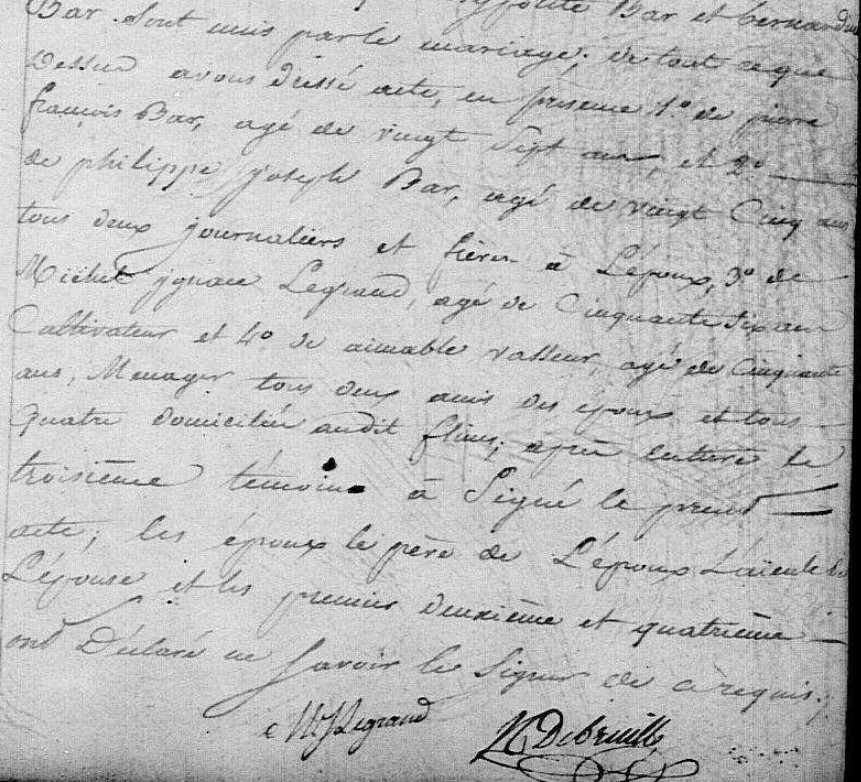 hyppolite Bar et bernardine
Bar. Sont unis par le mariage; de tout ce que
Dessus avons dressé acte, en présence 1º de pierre
françois Bar, agé de vingt Sept ans, et 2º
de philippe joseph Bar, agé de vingt Cinq ans
tous deux journaliers et frères à L'époux, 3º de
Michel ignace Legrand, agé de Cinquante six ans
Cultivateur et 4º de aimable vasseur, agé de Cinquante
ans, Menager tous deux amis des époux et tous
quatre domiciliés audit flines; après lecture le
troisième témoin à Signé le présent
acte; les époux le père de L'époux L'aieule de
L'épouse et les premier deuxième et quatrième
ont Déclaré ne Savoir le Signer de ce requis.
MJLegrand Debreuille